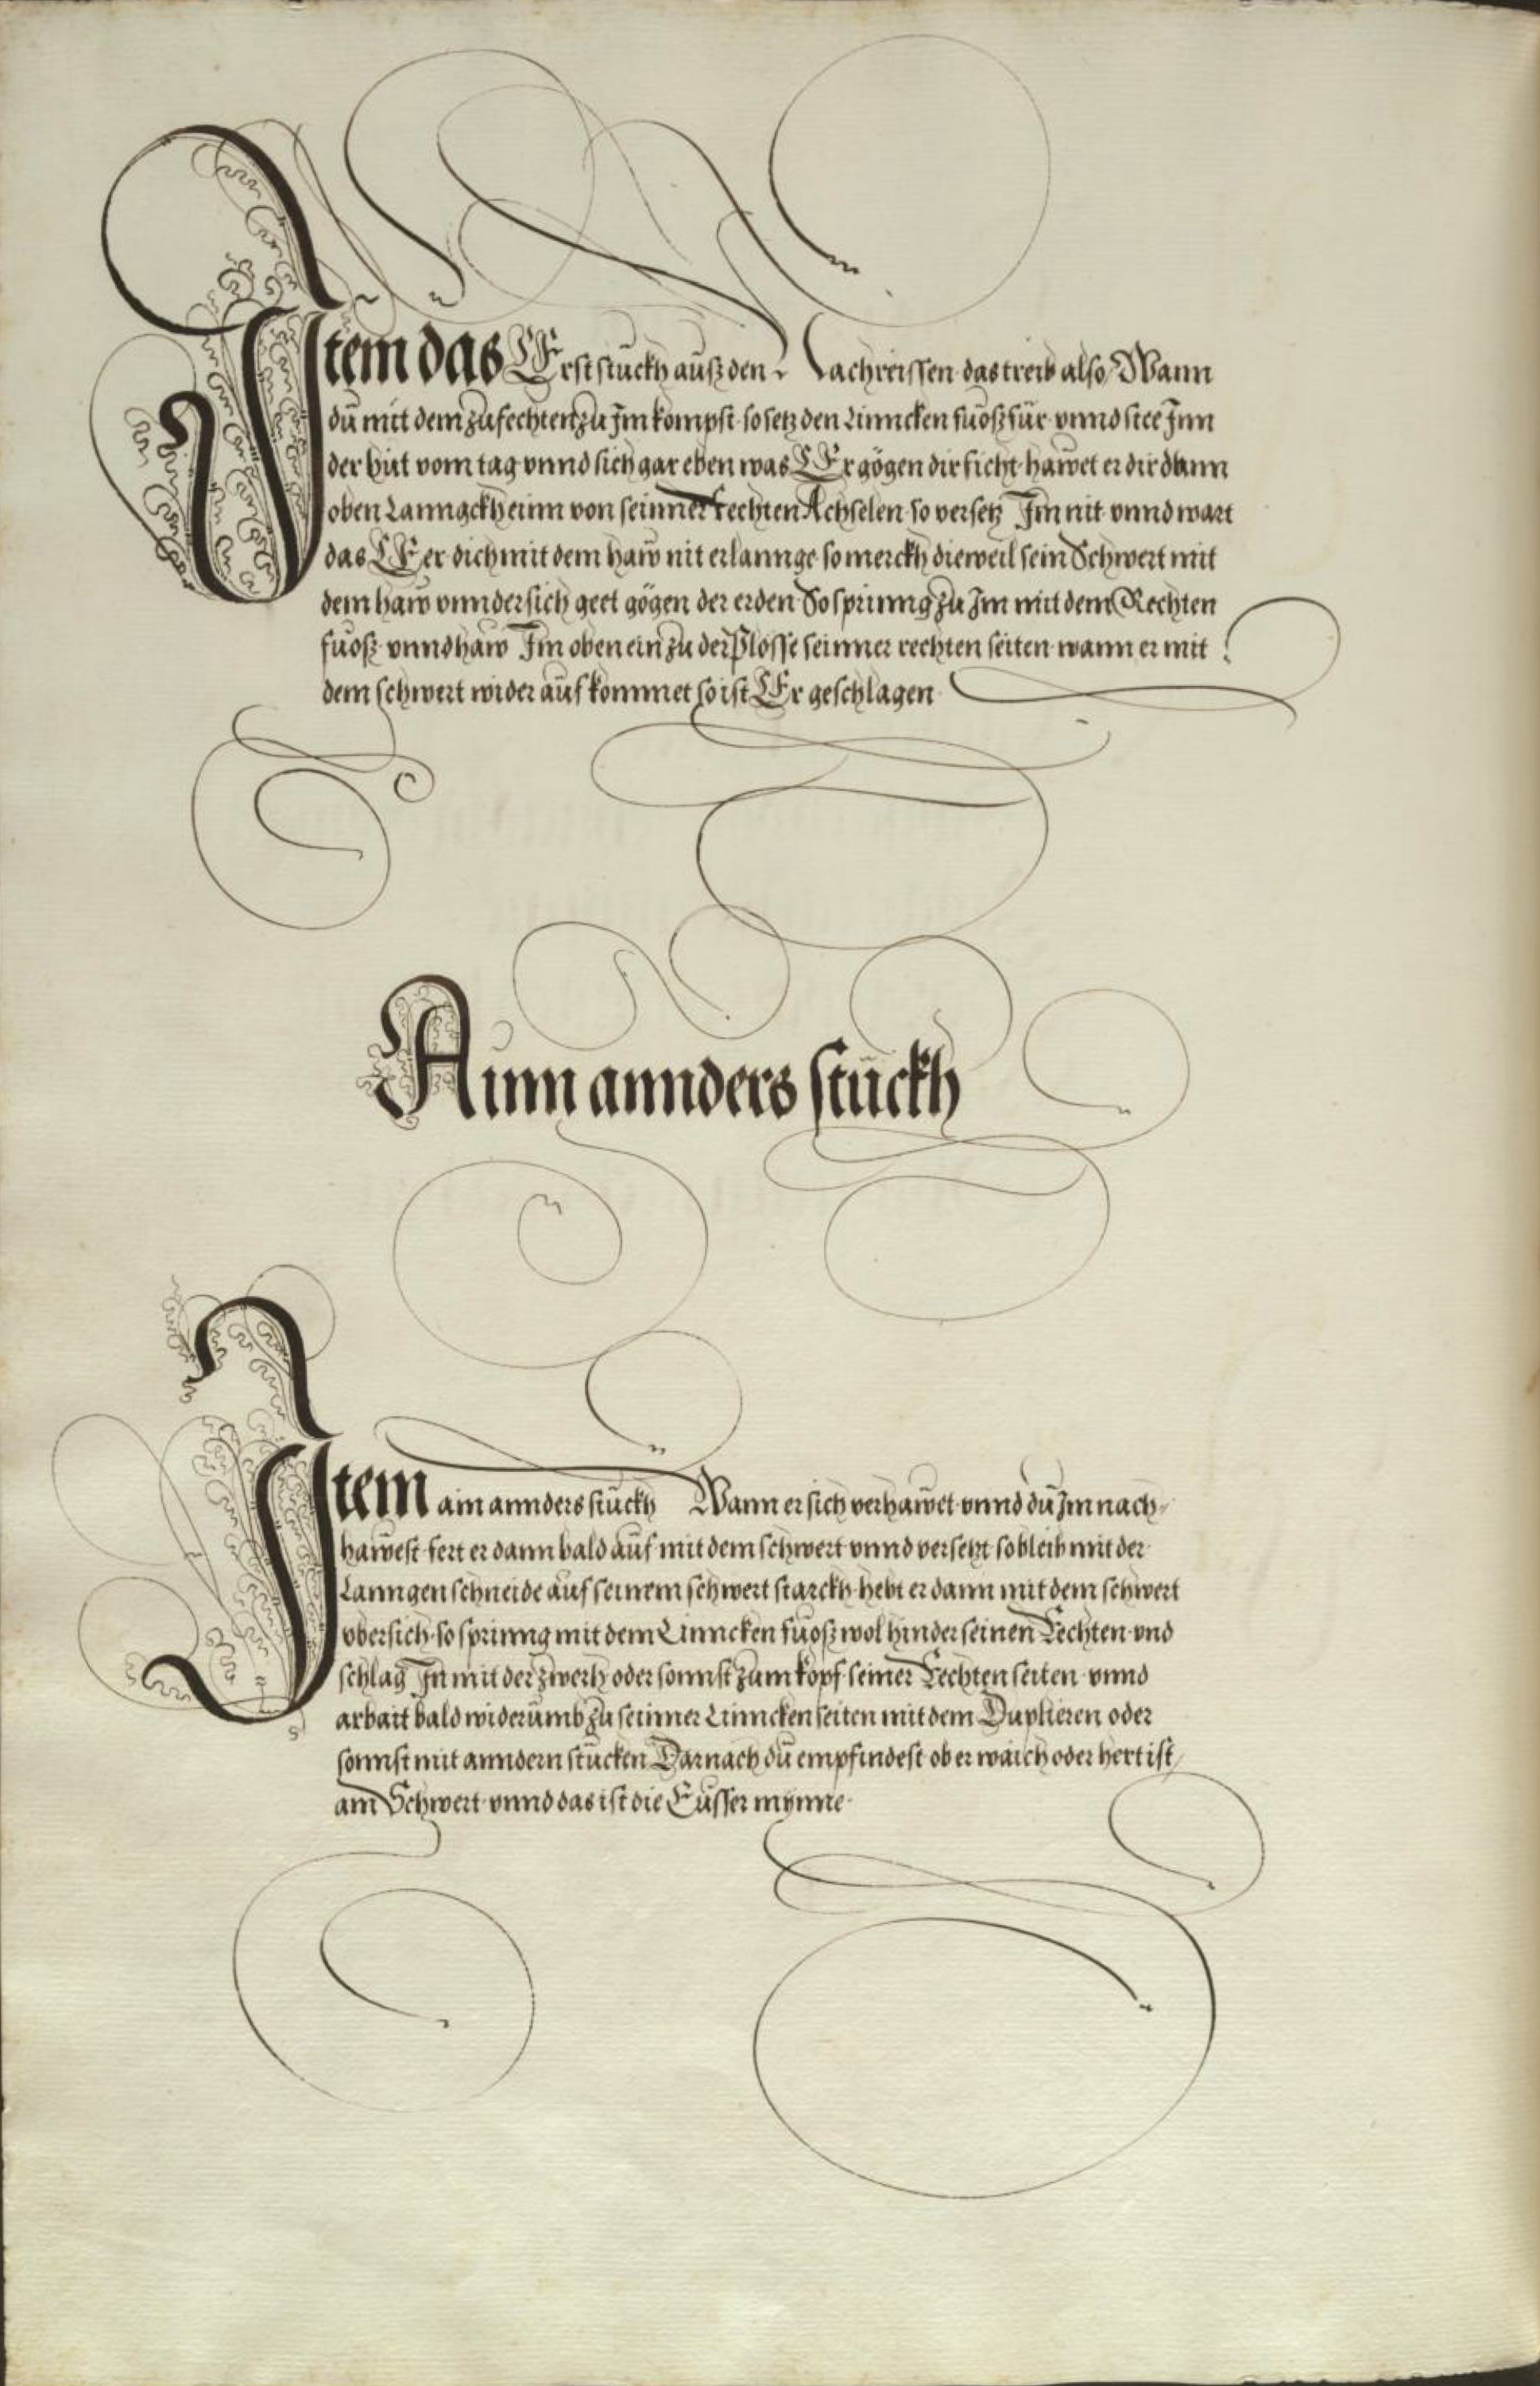 Item das Erst stuckh auß den Nachreissen das treib also Wann
dü mit dem zufechten zu Im kompst so setz den Linncken fuoß für vnnd stee Inn
der hüt vom tag vnnd sich gar eben was Er gögen dir ficht hawet er dir dann
oben Lanngckh einn von seinner rechten Achselen so versetz Im nit vnnd wart
das Er er dich mit dem haw nit erlannge so merckh dieweil sein Schwert mit
dem haw vnndersich geet gögen der erden So sprinng zu Im mit dem Rechten
fuoß vnnd haw Im oben ein zu der Plösse seinner rechten seiten wann er mit
dem schwert wider auf kommet so ist Er geschlagen
Ainn annders stückh
Item ain annders stückh Wann er sich verhawet vnnd du Im nach
hawest fert er dann bald auf mit dem schwert vnnd versetzt so bleib mit der
Lanngen schneide auf seinem schwert starckh hebt er dann mit dem schwert
vbersich so sprinng mit dem Linncken fuoß wol hinder seinen Rechten vnd
schlag In mit der zwerh oder sonnst zum kopf seiner Rechten seiten vnnd
arbait bald widerumb zu seinner Linncken seiten mit dem Duplieren oder
sonnst mit anndern stucken Darnach dü empfindest ob er waich oder hert ist
am Schwert vnnd das ist die Eusser mynne